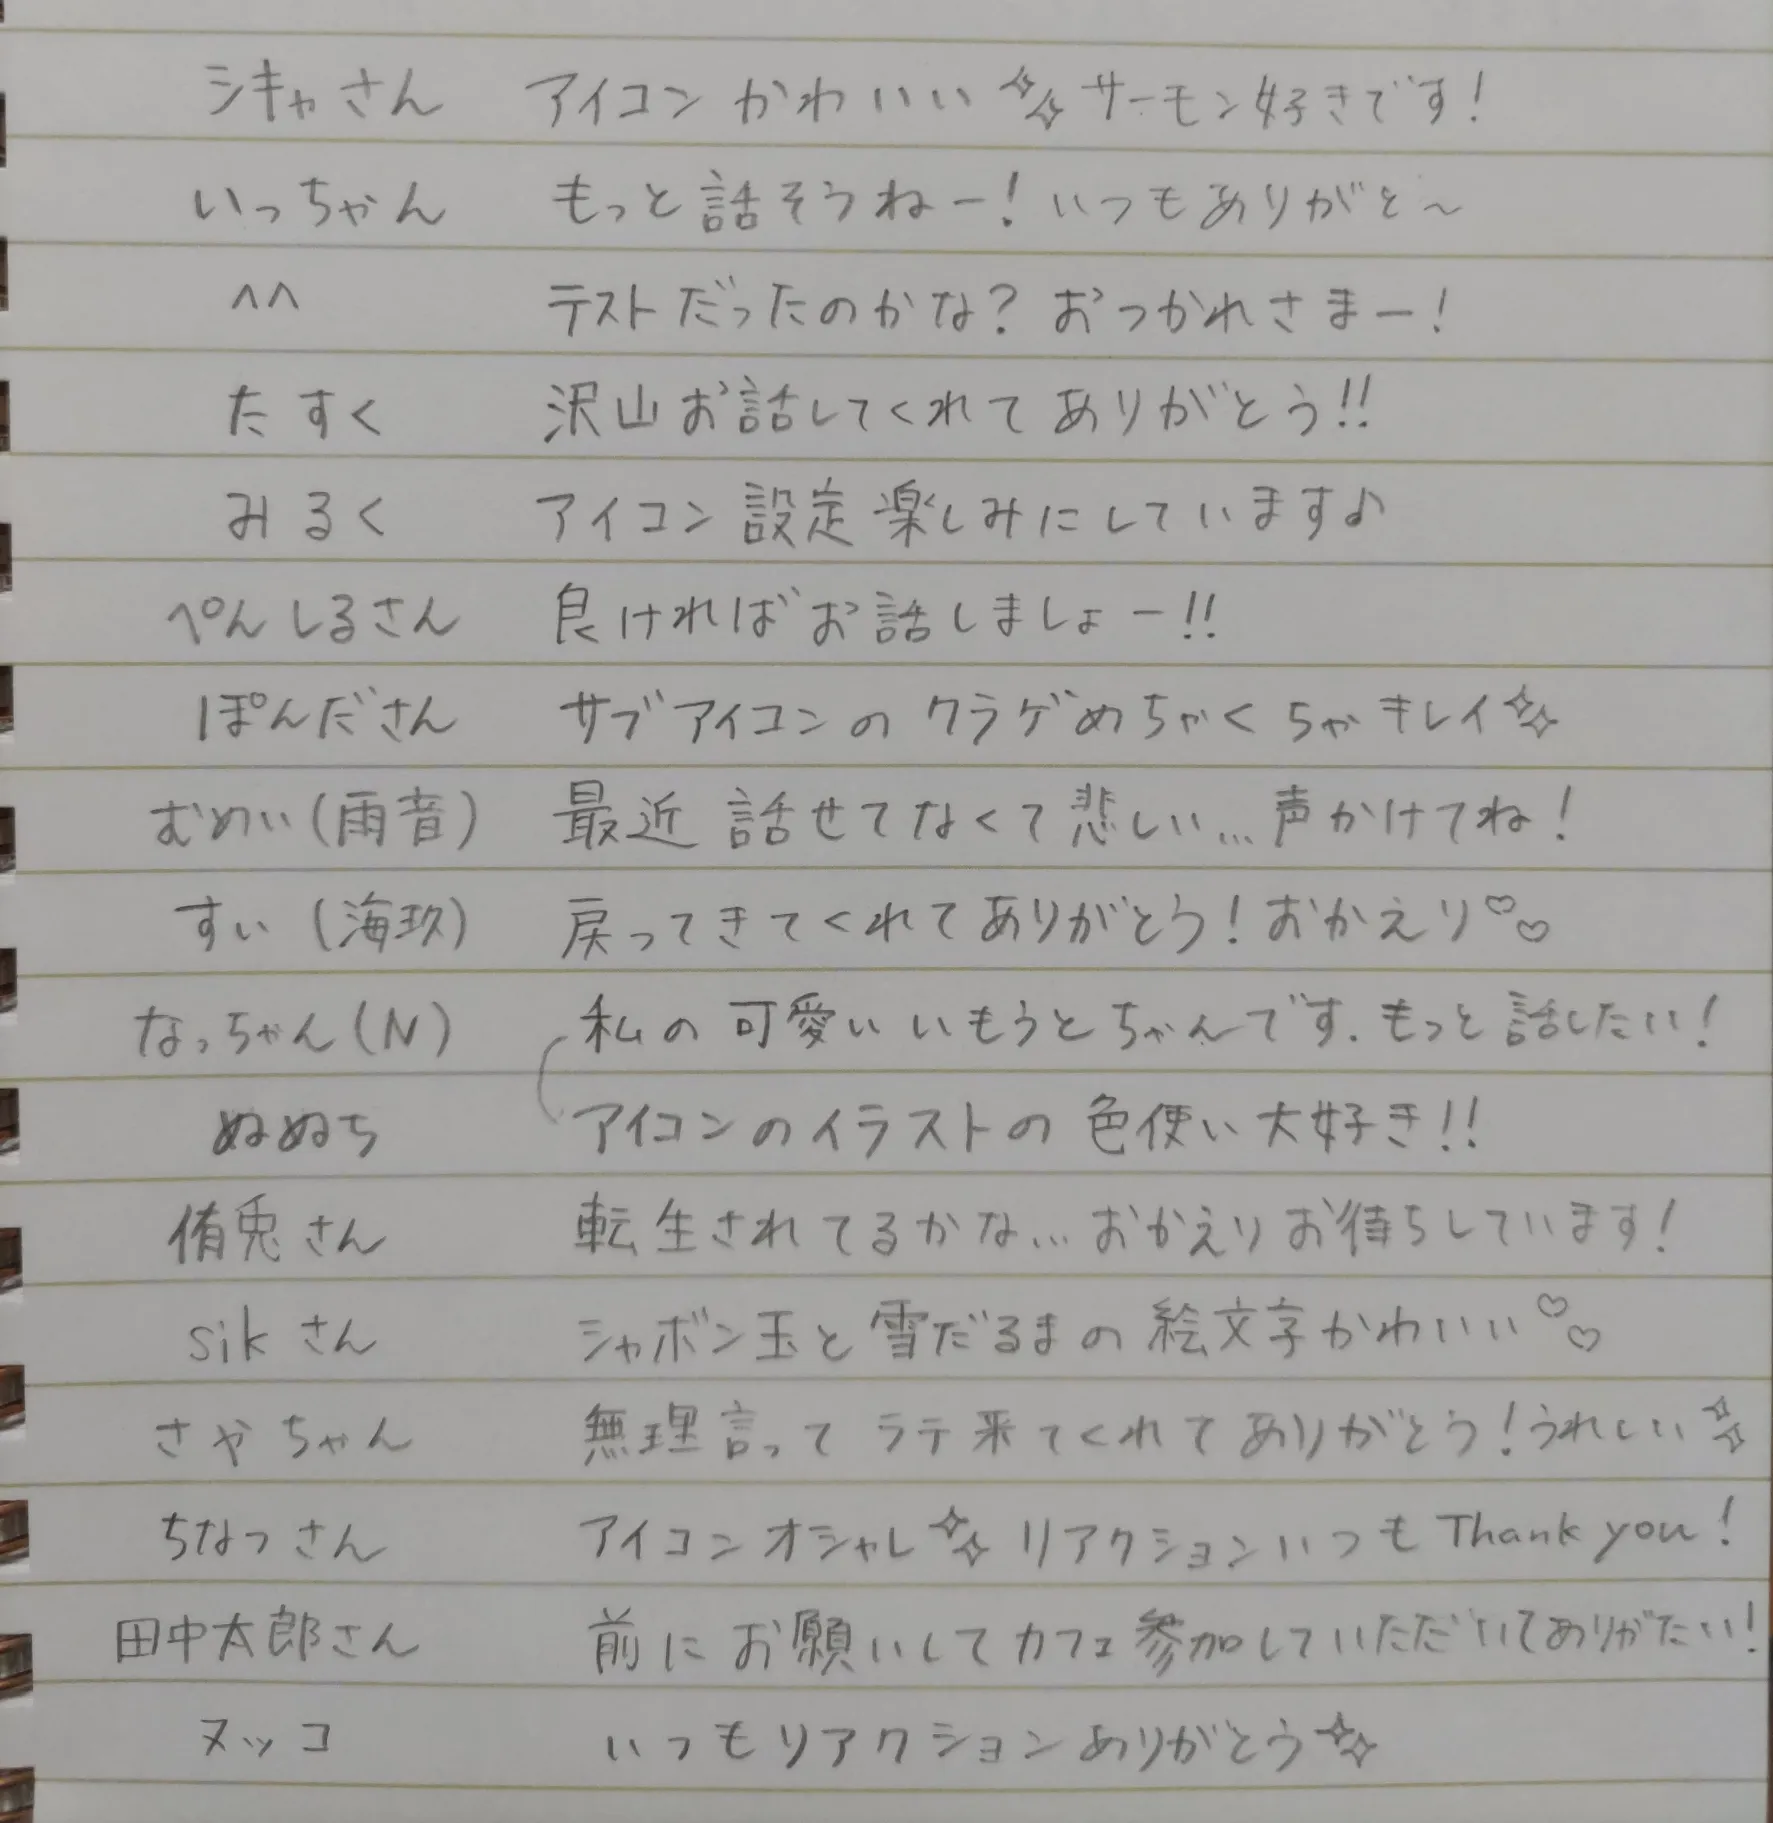 シキャさん アイコンかわいい✨サーモン好きです!
いっちゃん もっと話そうねー!いつもありがと～
^^ テストだったのかな?おつかれさまー!
たすく 沢山お話してくれてありがとう!!
みるく アイコン設定楽しみにしています♪
ぺんしるさん 良ければお話しましょー!!
ぽんださん サブアイコンのクラゲめちゃくちゃキレイ✨
むめい(雨音) 最近話せてなくて悲しい...声かけてね!
すい(海玖) 戻ってきてくれてありがとう!おかえり♡♡
なっちゃん(N) 私の可愛いいもうとちゃんです.もっと話したい!
ぬぬち アイコンのイラストの色使い大好き!!
侑兎さん 転生されてるかな...おかえりお待ちしています!
sikさん シャボン玉と雪だるまの絵文字かわいい♡♡
さやちゃん 無理言ってラテ来てくれてありがとう!うれしい✨
ちなつさん アイコンオシャレ✨リアクションいつもThank you!
田中太郎さん 前にお願いしてカフェ参加していただいてありがたい!
ヌッコ いつもリアクションありがとう✨